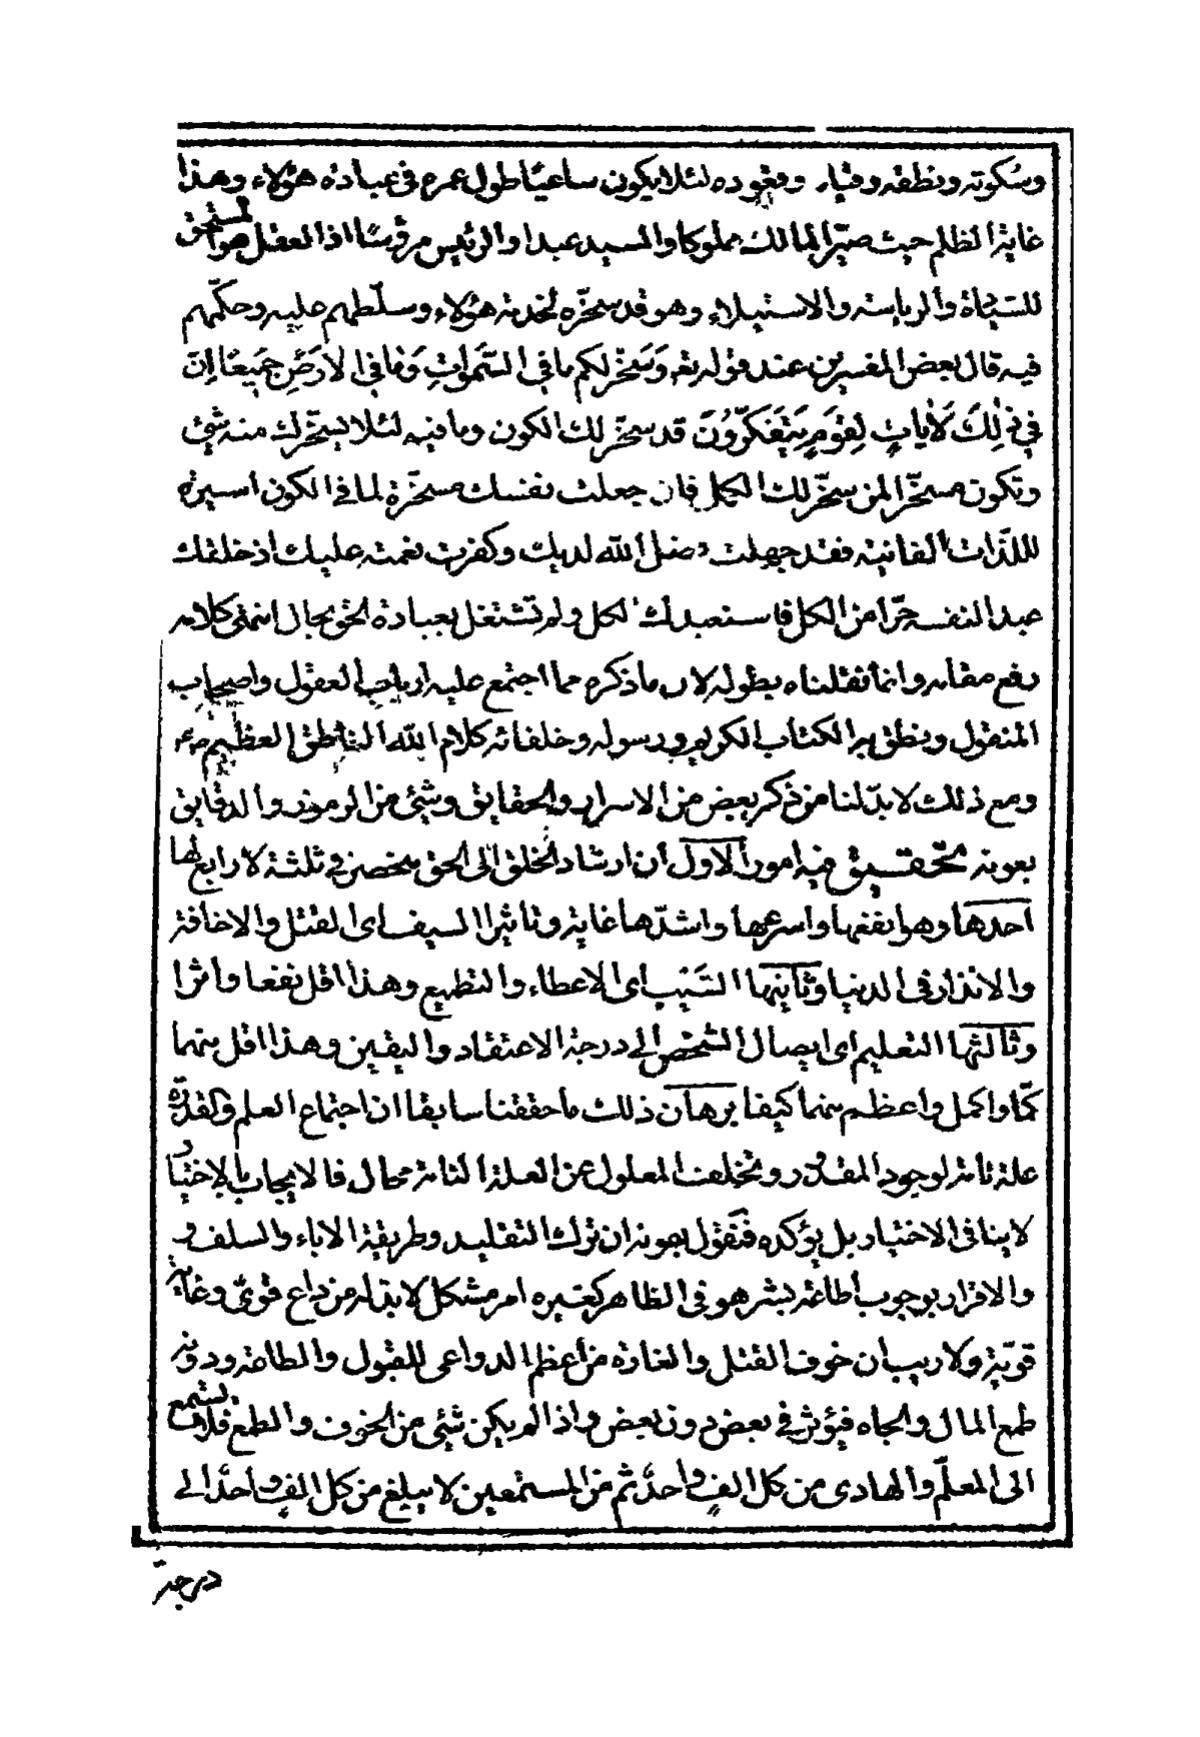 وسكوته ونطقه وقيامه وقعوده لئلا يكون ساعيًا طول عمره فى عبادة هؤلاء وهذا
غاية الظلم حيث صيّر المالك مملوكا والسيد عبدا والرئيس مرؤسًا اذا لعقل هو المستحق
للسيادة والرياسة والاستيلاء وهو قد سخّره لخدمة هؤلاء وسلّطهم عليه وحكّمهم
فيه قال بعض المفسرين عند قوله تعه وَسَخَّرَ لكم ما فِى السَّمٰواتِ وَمٰا فِى الْاَرْضِ جَمِيعًا اِنَّ
فِى ذٰلِكَ لَاٰيٰاتٍ لِقَوْمٍ يَتَفَكَّرُونَ قد سخّر لك الكون وما فيه لئلا يسخّرك منه شئ
وتكون مسخّرا لمن سخّر لك الكل فان جعلت نفسك مسخّرة لما فى الكون اسيرة
للذّات الفانية فقد جهلت فضل الله لديك وكفرت نعمته عليك اذ خلقك
عبدا لنفسه حرّا من الكل فاستعبدك الكل ولم تشتغل بعبادة الحق بحال انتهى كلامه
رفع مقامه وانما نقلناه بطوله لان ما ذكره مما اجتمع عليه ارباب العقول واصحاب
المنقول ونطق به الكتاب الكريم ورسوله وخلفائه كلام الله الناطق العظيم
ومع ذلك لا بدّ لنا من ذكر بعض من الاسرار والحقايق وشئ من الرموز والدقايق
بعونه تحقيق فيه امور الاول أن ارشاد الخلق الى الحق منحصر فى ثلثة لا رابع لها
احدها وهو انفعها واسرعها واشدّها غاية وتاثيرا السيف اى القتل والاخافة
والانذار فى الدنيا وثانيها السَّيْب اى الاعطاء والتطميع وهذا اقل نفعا واثرا
وثالثها التعليم اى ايصال الشخص الى درجة الاعتقاد واليقين وهذا اقل منهما
كمّا واكمل واعظم منهما كيفا برهان ذلك ما حققنا سابقا ان اجتماع العلم والقدرة
علة تامة لوجود المقدور وتخلف المعلول عن العلة التامة محال فالايجاب بالاختيار
لا ينافى الاختيار بل يؤكده فنقول بعونه ان ترك التقليد وطريقة الاباء والسلف
والاقرار بوجوب أطاعة بشر هو فى الظاهر كغيره امر مشكل لا بدّ له من داع قوىّ وغاية
قويّة ولا ريب ان خوف القتل والغارة من أعظم الدواعى للقبول والطاعة ودونه
طمع المال والجاه فيؤثر فى بعض دون بعض واذا لم يكن شئى من الخوف والطمع فلا يستمع
الى المعلّم والهادى من كل الفٍ واحدٌ ثم من المستمعين لا يبلغ من كل الفٍ واحدٌ الى
درجة